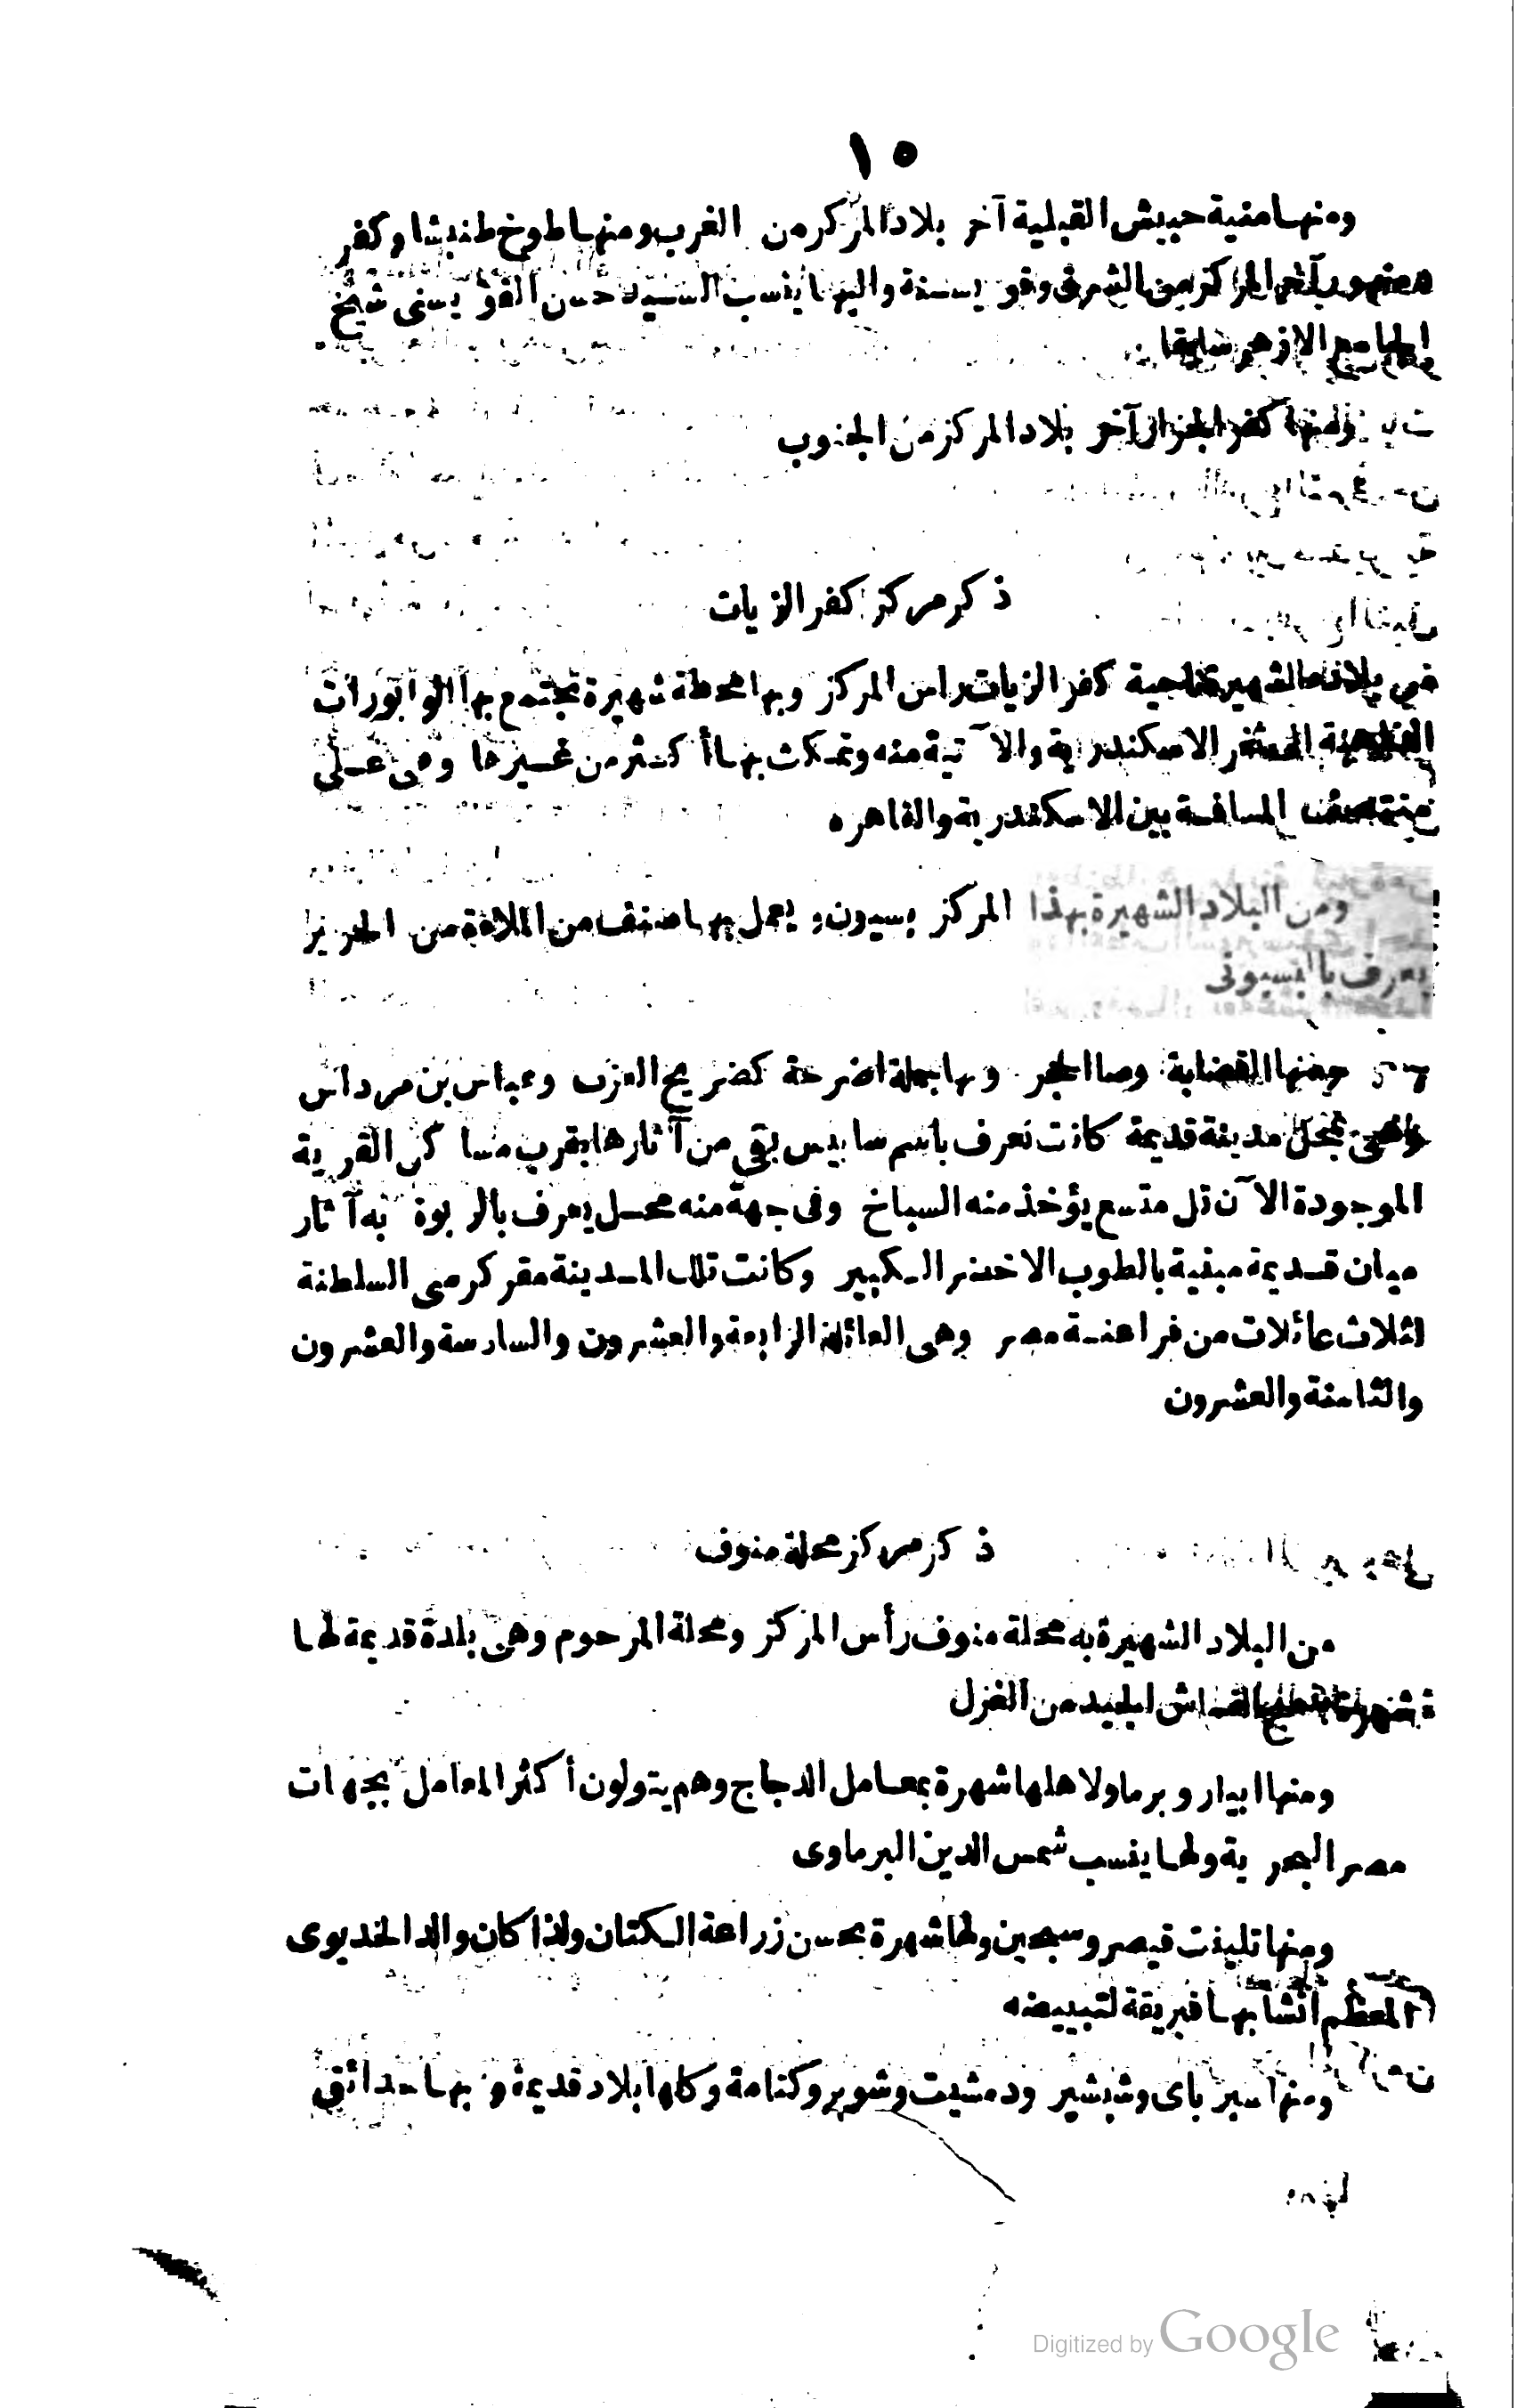 ١٥
ومنها منية حبيش القبلية آخر بلاد المركز من الغرب ومنها طوخ طنبشا وكفر
آخر المراكز من الشرق وقويسنة واليها ينسب السيد حسن القويسنى شيخ
الجامع الازهر سابقا
ومنها كفر الجزار آخر بلاد المركز من الجنوب
ذكر مركز كفر الزيات
فمن بلاده الشهيرة ناحية كفر الزيات راس المركز وبها محطة شهيرة تجتمع بها الوابورات
الذاهبة لثغر الاسكندرية والآتية منه وتمكث بها أكثر من غيرها وهى على
منتصف المسافة بين الاسكندرية والقاهره
ومن البلاد الشهيرة بهذا المركز بسيون و يعمل بها صنف من الملاءة من الحرير
يعرف بالبسيونى
ومنها القضابة وصا الحجر وبها جملة اضرحة كضريح العزب وعباس بن مرداس
وهى بمحل مدينة قديمة كانت تعرف باسم سايبس بقى من آثارها بقرب مساكن القرية
الموجودة الآن تل متسع يؤخذ منه السباخ وفى جهة منه محل يعرف بالربوة به آثار
مبان قديمة مبنية بالطوب الاخضر الكبير وكانت تلك المدينة مقر كرسى السلطنة
لثلاث عائلات من فراعنة مصر وهى العائلة الرابعة والعشرون والسادسة والعشرون
والثامنة والعشرون
ذكر مركز محلة منوف
من البلاد الشهيرة به محلة منوف رأس المركز ومحلة المرحوم وهى بلدة قديمة لها
شهرة القماش الجيد من الغزل
ومنها ابيار وبرما ولاهلها شهرة بمعامل الدجاج وهم يتولون أكثر المعامل بجهات
مصر البحرية ولها ينسب شمس الدين البرماوى
ومنها تلبنت قيصر وسجين ولها شهرة بحسن زراعة الكتان ولذا كان والد الخديوى
المعظم أنشأ بها فبريقة لتبييضه
ومنها سبرباى وشبشير ودمشيت وشوبر وكنامة وكلها بلاد قديمة وبها حدائق
Digitized by Google